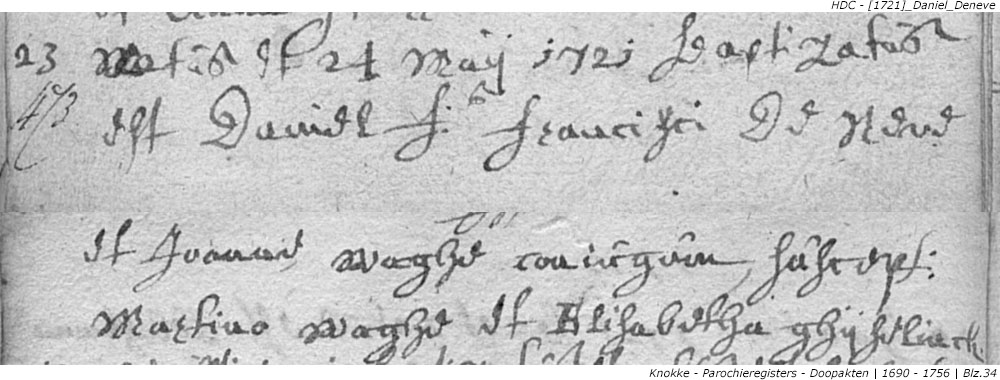 HDC - [1721]_Daniel_Deneve
23 Natus et 24 Maij 1721 baptizatus
473 est Daniel f.s francisci De Neve
et Joanne waghe coniugum suscept:
Martino waghe et Elisabetha ghijselinck
Knokke - Parochieregisters - Doopakten | 1690 - 1756 | Blz.34